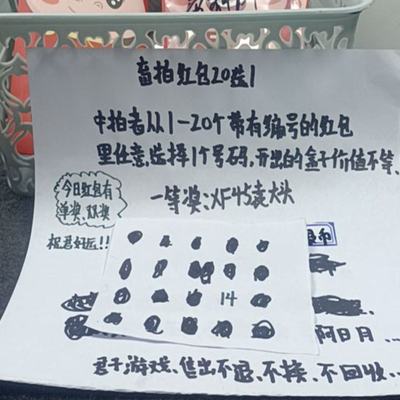 盲拍红包20选1
中拍者从1-20个带有编号的红包
里任意选择1个号码,开出的盒子价值不等、
今日红包有
单奖、双奖
祝君好运!!
一等奖:XF45袁大头
银币
14
阿日月...
君子游戏、售出不退、不换、不回收...